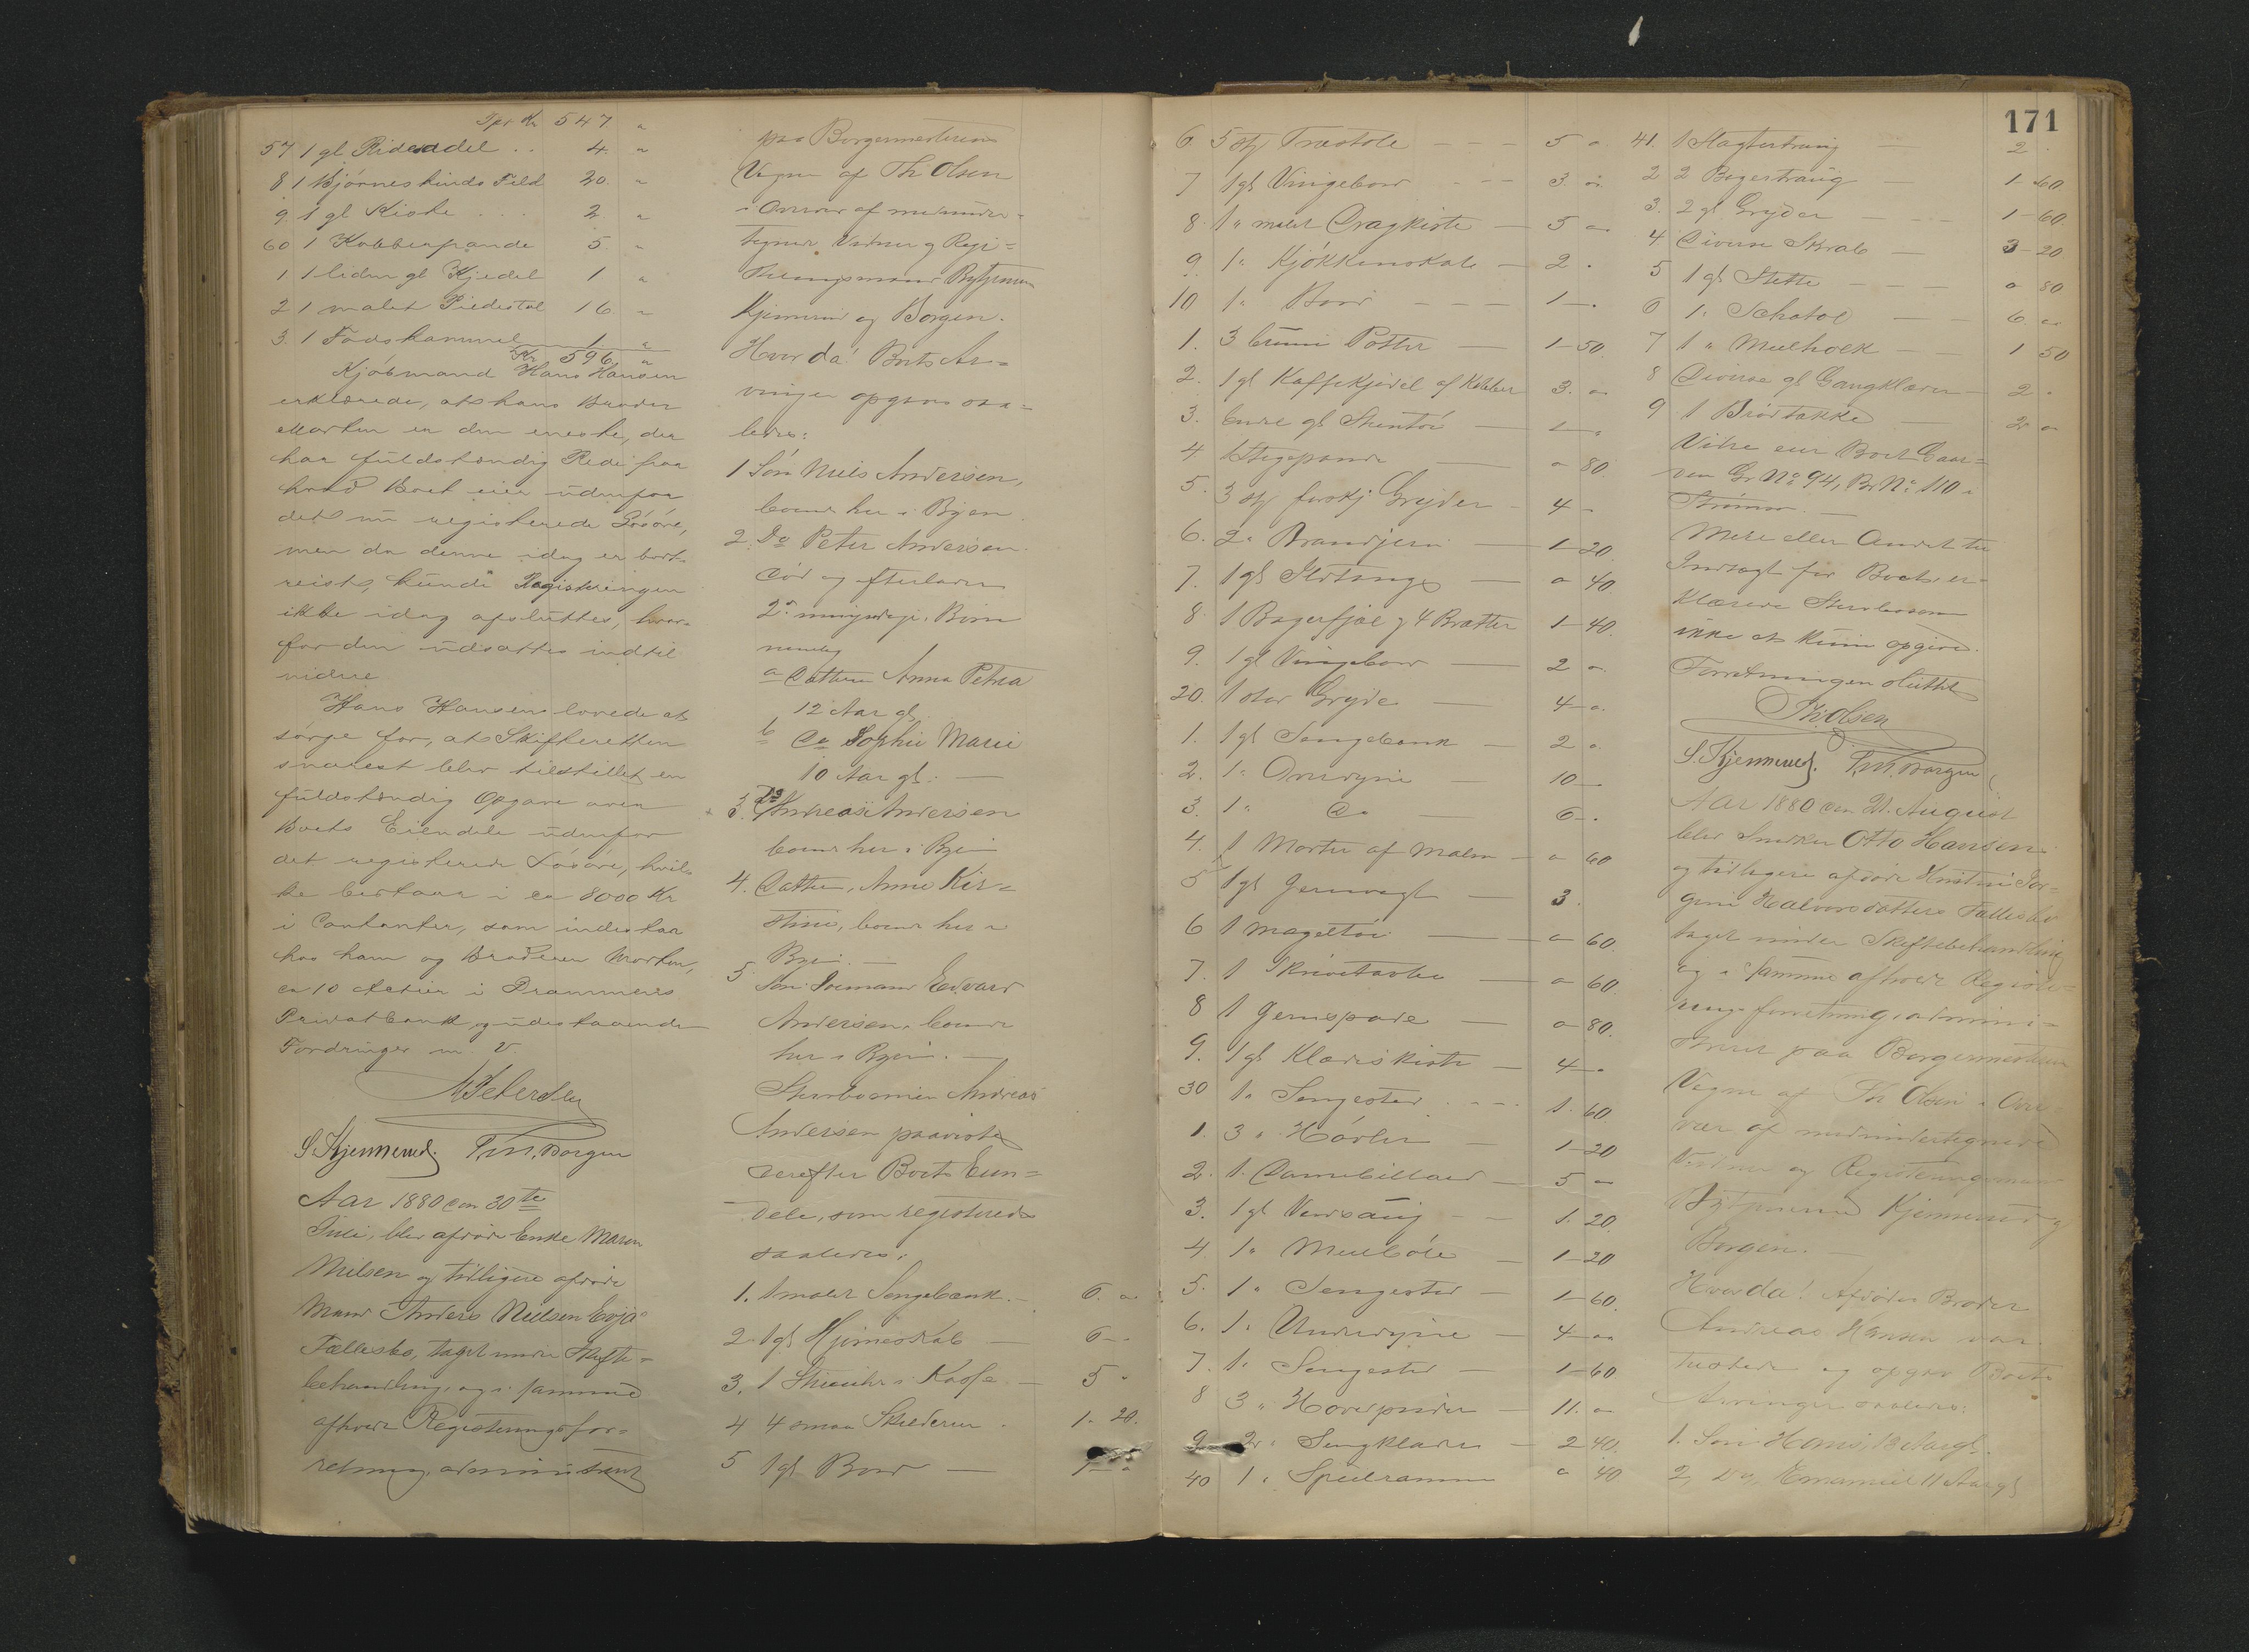 Tpt Kr 547 "
57 1 gl Ridesadel .. 4. "
8 1 Bjørneskinds Feld 20. "
9. 1 gl Kiste ... 2. "
60 1 Kobberpande 5. "
1 1 liden gl Kjedel 1 "
2 1 malet Piedestal 16 "
3. 1 Fodskammel 1 "
Kr 596 "
Kjøbmand Hans Hansen
erklærede, at hans Broder
Morten er den eneste, der
har fuldstændig Rede paa
hvad Boet eier udenfor
det nu registrerede Løsøre,
men da denne idag er bort-
reist, kunde Registreringen
ikke idag afsluttes, hvor-
for den udsattes indtil
videre
Hans Hansen lovede at
sørge for, at Skifteretten
snarest blev tilstillet en
fuldstændig Opgave over
Boets Eiendele udenfor
det registrerede Løsøre, hvil-
ke bestaar i ca 8000 Kr
i Contanter, som indestaar
hos ham og Broderen Morten,
ca 10 Actier i Drammens
Privatbank, og udestaaende
Fordringer m. V.
S. Kjennerud. T. M. Borgen
Aar 1880 den 30te
Juli, blev afdøde Enke Maren
Nielsen og tidligere afdøde
Mand Anders Nielsen Evja
Fællesbo, taget under Skifte=
behandling, og i samme
afholdt Registreringsfor=
retning, administreret
paa Borgermesterens
Vegne af Th Olsen
i Overvær af medunder=
tegnede Vidner og Regi=
streringsmænd Bytjenerne
Kjennerud og Borgen.
Hvorda! Boets Ar=
vinger opgaves saa=
ledes:
1 Søn Niels Andersen,
boende her i Byen.
2. Do Peter Andersen.
død og efterlader
2de umyndige Børn
nemlig
a Datteren Anna Petra
12 Aar gl.
b Do Sophie Marie
10 Aar gl. —
3. Do Andreas Andersen
boende her i Byen
4. Datter, Anne Kir=
stine, boende her i
Byen. —
5. Søn Sømand Edvard
Andersen, boende
her i Byen. —
Stervboesønnen Andreas
Andersen paaviste
derefter Boets Eien=
dele, som registreredes
saaledes:
1. 1 malet Sengebænk — 6. "
2. 1 gl Hjørneskab — 6 - "
3. 1 Stueuhr i Kasse — 5 "
4 4 smaa Skilderier . 1. 20.
5 1 gl Bord — 1 - "
171
6. 5 stk Træstole - - - 5 "
7 1 gl Vingebord - - - 3. "
8. 1 " malet Dragkiste — 5 "
9. 1 " Kjøkkenskab — 2 "
10 1 " Bord - - - 1 - "
1. 3 brune Potter — 1 - 50.
2. 1 gl Kaffekjedel af Kobber 3. "
3. Endel gl Stentøi — 1 - "
4 1 Stegepande — " 80.
5. 3 stk forskj Gryder - 4 -
6. 2 " Brandjern — 1 - 20.
7. 1 gl Ildtang — " 40.
8. 1 Bagerfjæl og 4 Bratter 1 - 40.
9. 1 gl Vingebord — 2 "
20. 1 stor Gryde — 4 - "
1. 1 gl Sengebænk — 2 "
2. 1 " Overdyne — 10 -
3. 1 " do — 6 - "
4. 1 Morter af Malm - " 60
5 1 gl Jernvægt — 3.
6 1 Mageltøi — " 60.
7. 1 Skrivetavle — " 60.
8 1 Jernspade — " 80.
9. 1 gl Klædeskiste — 4 - "
30 1 " Sengested . - - 1. 60.
1. 3 " Høvler — 1 - 20
2. 1. Damebillard — 5 -
3. 1 gl Vendsaug - - 1. 20.
4. 1 " Meelbøle — 1 - 20
5. 1 " Sengested — 1 - 60.
6. 1 " Underdyne — 4 - "
7. 1 " Sengested — 1 - 60
8 3 " Hovedpuder — 11. "
9 2 " Sengklæder — 2 40.
40 1 " Speilramme " 40
41. 1 Slagtertraug — 2 "
2 2 Bagertraug — 1 - 60
3. 2 gl Gryder — 1 - 60.
4 Diverse Skrab — 3 - 20
5 1 gl Støtte — " 80
6 1 " Schatol — 6 "
7 1 " Meelholk — 1 50
8 Diverse gl Gangklæder — 2 "
9 1 Brødtakke — 2 "
Videre eier Boet Gaar=
den Gr No 94, Br No 110 i
Strømsø. —
Mere eller Andet til
Indtægt for Boet er=
klærede Stervbosønnen
ikke at kunne opgive.
Forretningen sluttet
Th. Olsen
S. Kjennerud. T. M. Borgen
Aar 1880 den 21. August
blev Snedker Otto Hansen
og tidligere afdøde Hustru Jør=
gine Halvorsdatters Fællesbo
taget under Skiftebehandling
og i samme afholdt Registre=
ringsforretning, admini=
streret paa Borgermesterens
Vegne af Th Olsen i Over=
vær af medundertegnede
Vidner og Registreringsmænd
Bytjenerne Kjennerud og
Borgen.
Hvorda! Afdødes Broder
Andreas Hansen var
tilstede og opgav Boets
Arvinger saaledes:
1. Søn Hans, 13 Aar gl.
2, Do, Emanuel 11 Aar gl